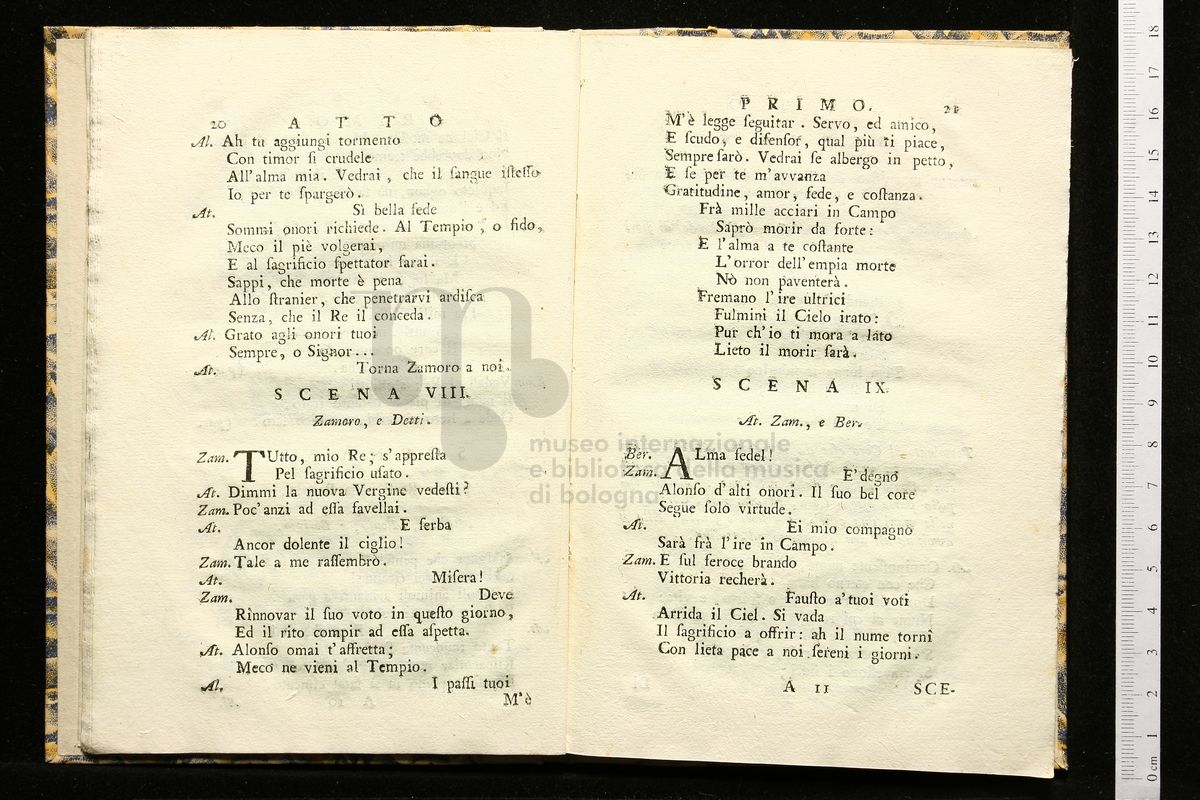 20 ATTO
Al. Ah tu aggiungi tormento
Con timor sì crudele
All'alma mia. Vedrai, che il ſangue iſteſſo
Io per te ſpargerò.
At. Sì bella fede
Sommi onori richiede. Al Tempio, o fido,
Meco il piè volgerai,
E al ſagrificio ſpettator ſarai.
Sappi, che morte è pena
Allo ſtranier, che penetrarvi ardiſca
Senza, che il Re il conceda.
Al. Grato agli onori tuoi
Sempre, o Signor...
At. Torna Zamoro a noi.
SCENA VIII.
Zamoro, e Detti.
Zam. TUtto, mio Re; s'appreſta
Pel ſagrificio uſato.
At. Dimmi la nuova Vergine vedeſti?
Zam. Poc'anzi ad eſſa favellai.
At. E ſerba
Ancor dolente il ciglio!
Zam. Tale a me raſſembrò.
At. Miſera!
Zam. Deve
Rinnovar il ſuo voto in queſto giorno,
Ed il rito compir ad eſſa aſpetta.
At. Alonſo omai t'affretta;
Meco ne vieni al Tempio.
Al. I paſſi tuoi
M'è
PRIMO. 21
M'è legge ſeguitar. Servo, ed amico,
E ſcudo, e difenſor, qual più ti piace,
Sempre ſarò. Vedrai ſe albergo in petto,
E ſe per te m'avvanza
Gratitudine, amor, fede, e coſtanza.
Frà mille acciari in Campo
Saprò morir da forte:
E l'alma a te coſtante
L'orror dell'empia morte
Nò non paventerà.
Fremano l'ire ultrici
Fulmini il Cielo irato:
Pur ch'io ti mora a lato
Lieto il morir ſarà.
SCENA IX.
At. Zam., e Ber.
Ber. ALma fedel!
Zam. E' degno
Alonſo d'alti onori. Il ſuo bel core
Segue ſolo virtude.
At. Ei mio compagno
Sarà frà l'ire in Campo.
Zam. E ſul feroce brando
Vittoria recherà.
At. Fauſto a' tuoi voti
Arrida il Ciel. Si vada
Il ſagrificio a offrir: ah il nume torni
Con lieta pace a noi ſereni i giorni.
A 11 SCE-
museo internazionale
e biblioteca della musica
di bologna
0 cm 1 2 3 4 5 6 7 8 9 10 11 12 13 14 15 16 17 18